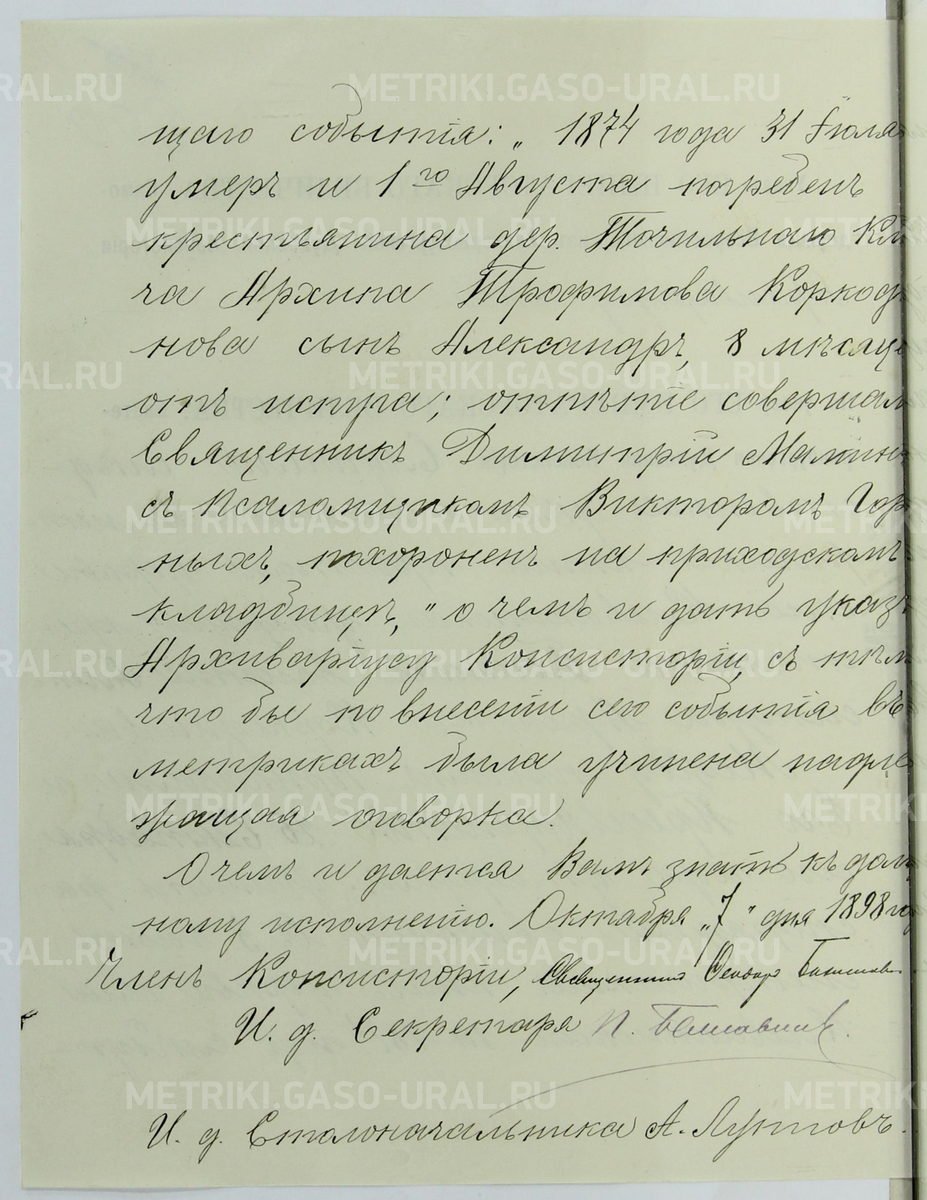 щаго событія: „ 1874 года 31 Іюля
умеръ и 1го Августа погребенъ
крестьянина дер. Точильнаго Клю
ча Архипа Трофимова Коркоди
нова сынъ Александръ, 8 мѣсяце
отъ испуга; отпѣтіе совершал
Священникъ Димитрій Малини
съ псаломщикомъ Викторомъ Гор
ныхъ, похороненъ на приходскомъ
кладбищѣ," о чемъ и дать указъ
Архиваріусу Консисторіи, съ тѣм
что бы по внесеніи сего событія въ
метрикахъ была учинена надле
жащая оговорка.
О чемъ и дается Вамъ знать къ долж
ному исполненію. Октября „7" дня 1898 го
Членъ Консисторіи, Священникъ Ѳеодоръ
И. д. Секретаря П.
И. д. Столоначальника А. Лутовъ.
METRIKI.GASO-URAL.RU